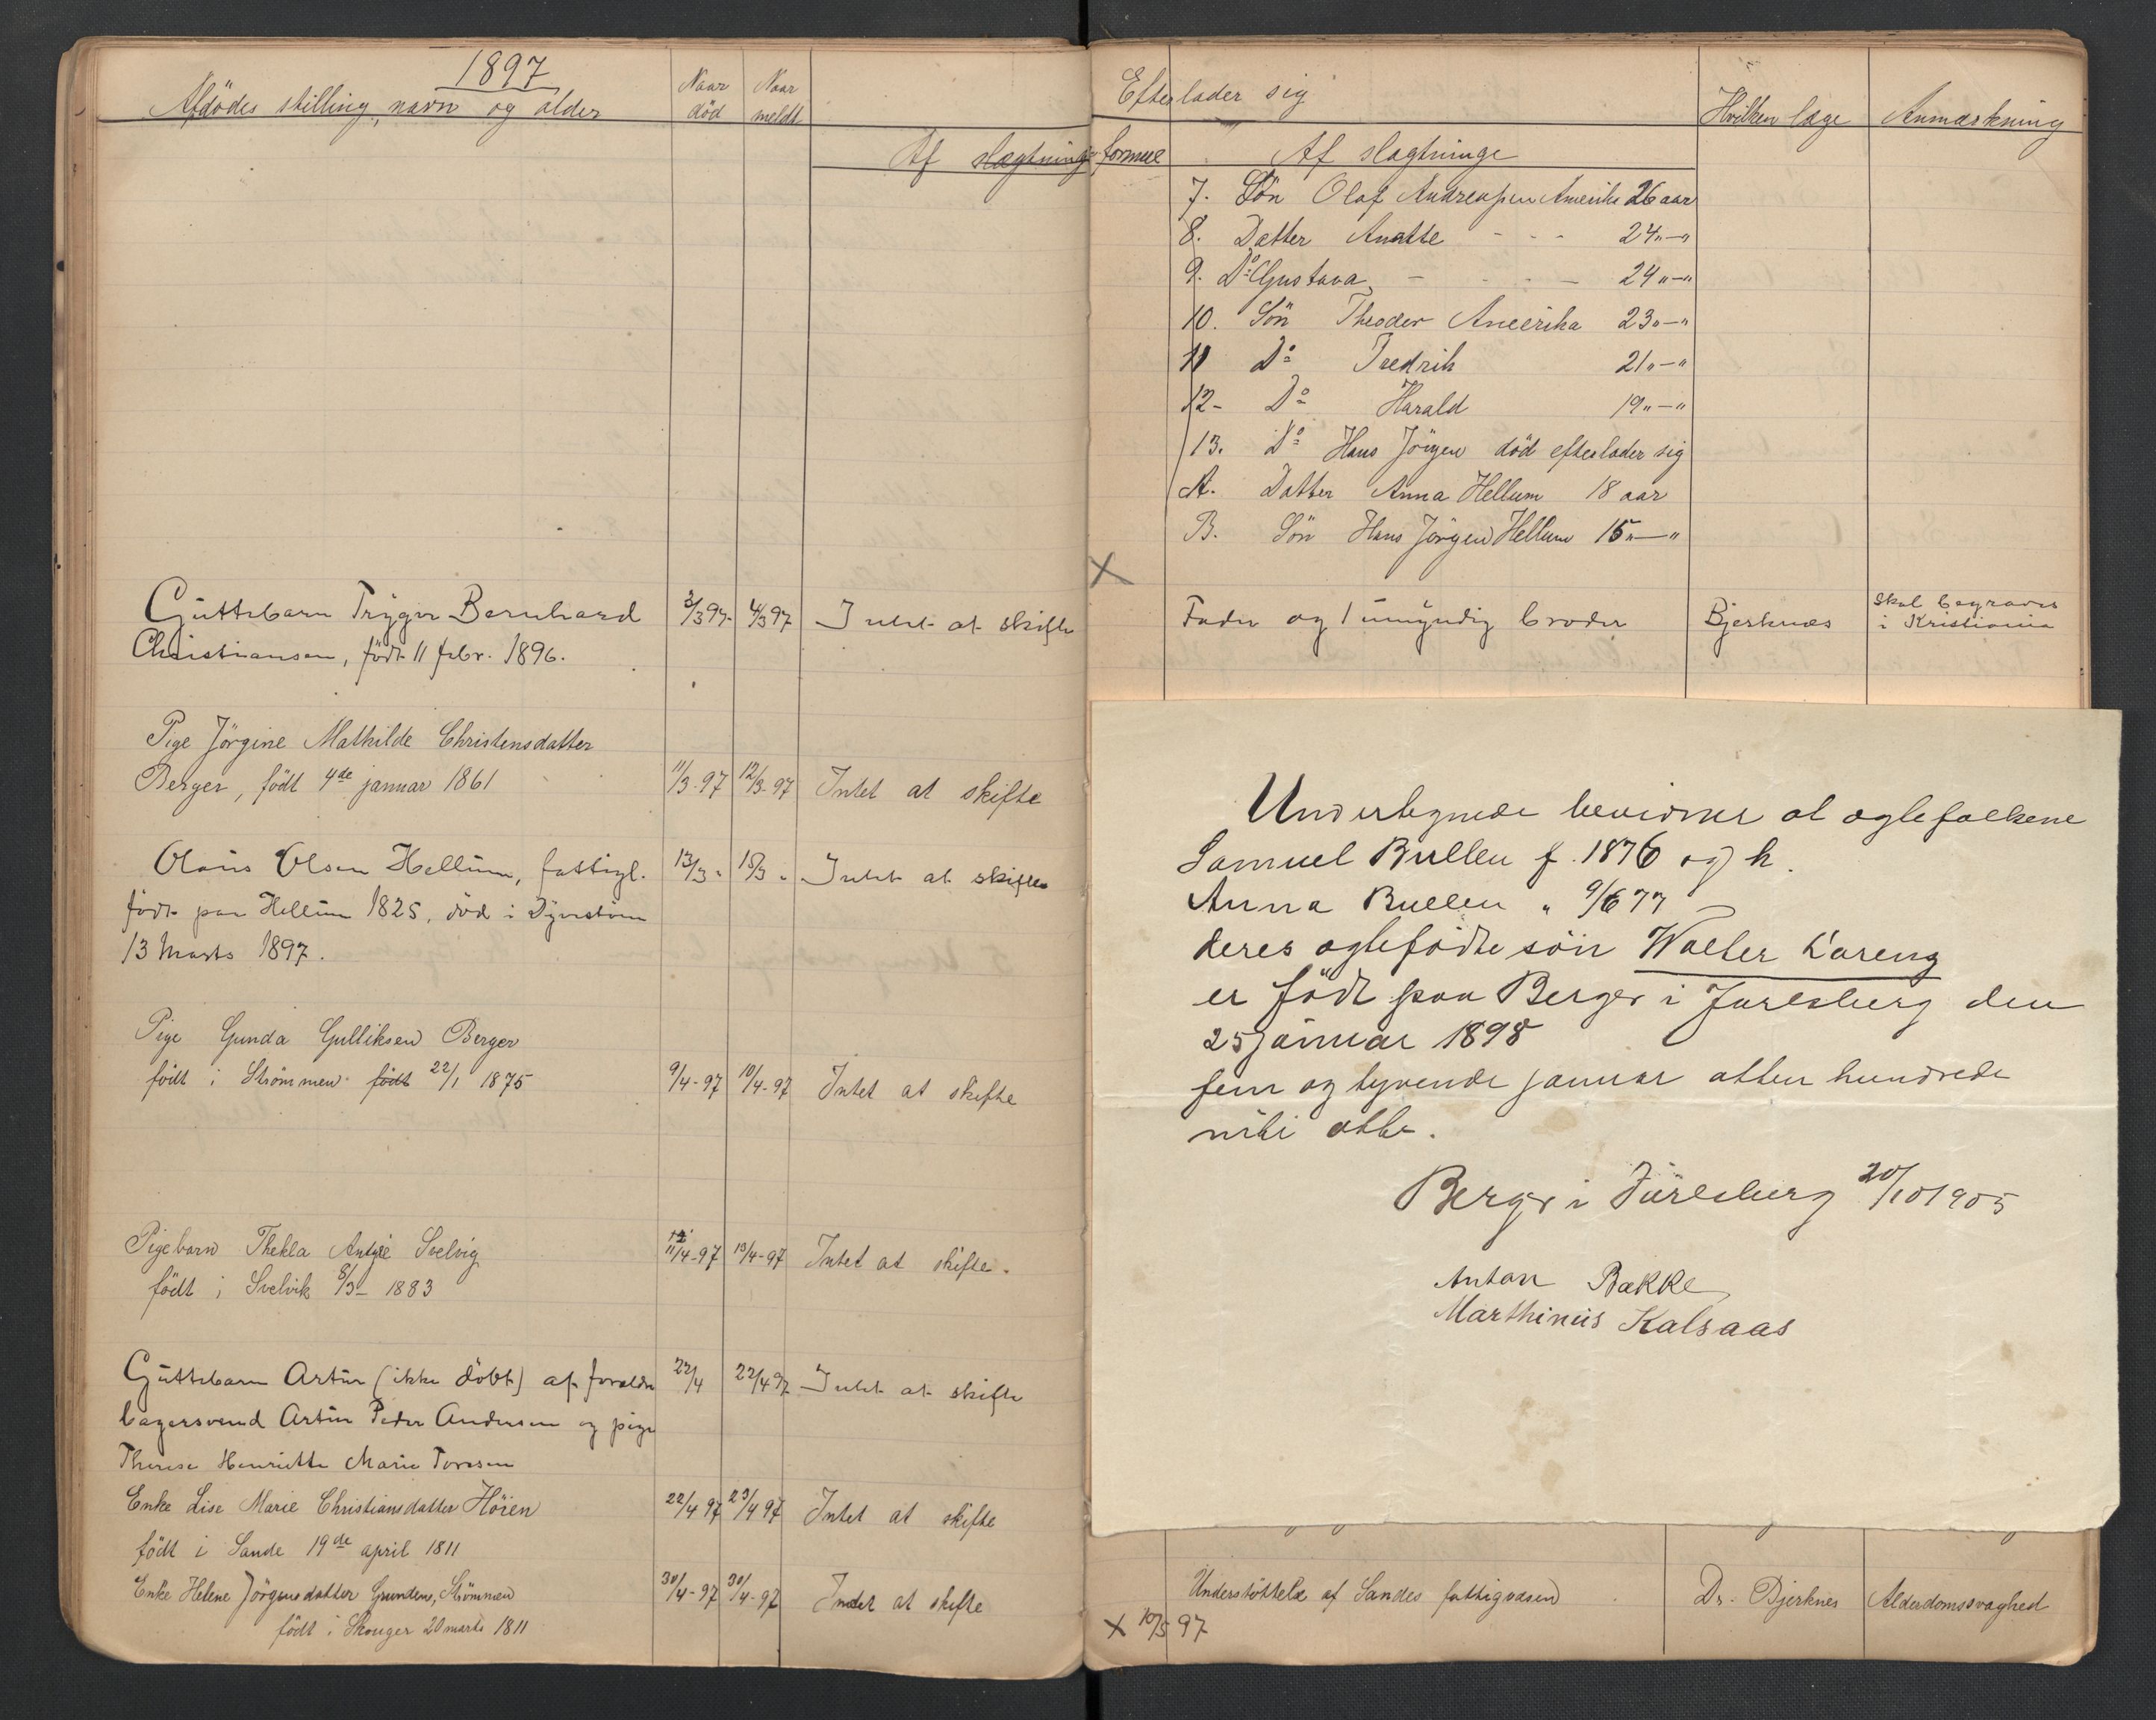 1897
Afdödes stilling, navn og alder
Naar död
Naar meldt
Af slægtninge
Guttebarn Trygve Bernhard 3/3 97 4/3 97 Intet at skifte
Christiansen, födt 11 febr. 1896.
Pige Jörgine Mathilde Christensdatter
Berger, födt 4de januar 1861 11/3-97 12/3-97 Intet at skifte
Olaus Olsen Hellum, fattigl. 13/3 " 15/3 " Intet at skifte
födt paa Hellum 1825, död i
13 Marts 1897.
Pige Gunda Gulliksen Berger
födt i Strömmen födt 22/1 1875 9/4-97 10/4-97 Intet at skifte
Pigebarn Thekla Svelvig 11/4-97 13/4-97 Intet at skifte.
födt i Svelvik 8/3 1883
Guttebarn Artur (ikke döbt) af forældre 22/4 22/4 97 Intet at skifte
bagersvend Artur Peder Andersen og pige
Therese Henriette Marie
Enke Lise Marie Christiansdatter Höien 22/4 97 23/4 97 Intet at skifte
födt i Sande 19de april 1811
Enke Helene Jörgensdatter Grunden, Strömmen 30/4-97 30/4-97 Intet at skifte
födt i Skouger 20 marts 1811
Efterlader sig
Hvilken læge
Anmærkning
formue
Af slægtninge
7. Sön Olaf Andreassen Amerika 26 aar
8. Datter Anette - - - 24 "-"
9. Do Gustava - - - 24 "-"
10. Sön Theodor Amerika 23 "-"
11 Do Fredrik 21 "-"
12- Do Harald 19 "-"
13. Do Hans Jörgen död efterlader sig
A. Datter Anna Hellum 18 aar
B. Sön Hans Jörgen Hellum 15 "-"
X
Fader og 1 umyndig broder Bjerknæs Skal begraves
i Kristiania
Undertegnede bevidner at ægtefolkene
Samuel Bullen f. 1876 og h.
Anna Bullen " 9/6 77
deres ægtefödte sön Walter
er födt paa Berger i Jarlsberg den
25 januar 1898
fem og tyvende januar atten hundrede
nitti otte.
Berger i Jarlsberg 20/10 1905
Anton Bakke
Marthinus Kalsaas
Understöttelse af Sandes fattigvæsen Dr. Bjerknes Alderdomssvaghed
X 10/5 97